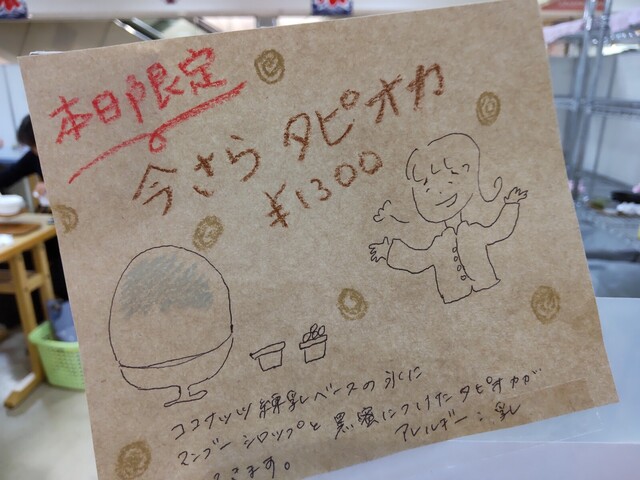 本日限定
今さら タピオカ
¥1300
ココナッツ練乳ベースの氷に
マンゴーシロップと 黒蜜につけたタピオカが
ます。
アレルギー:乳